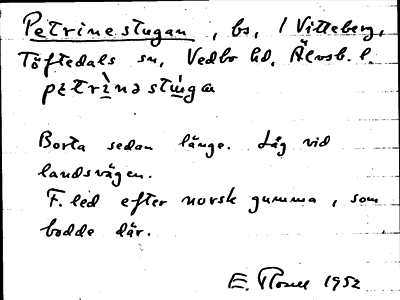 Petrinestugan, bs, / Vitteberg,
Töftedals sn, Vedbo hd, Älvsb. l.
petrìnəstúga
Borta sedan länge. Låg vid
landsvägen.
F. led efter norsk gumma, som
bodde där.
E. 1952